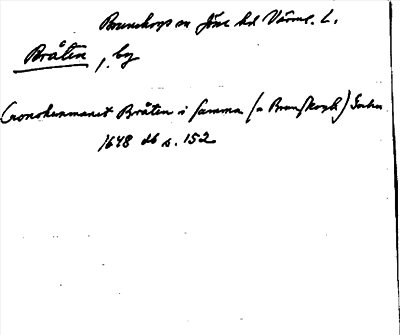 Brunskogs sn Jösse hd Värml. L.
Bråten, by
Cronohemmanet Bråten i samma (a Brunskogh) Sochn
1648 db s. 152